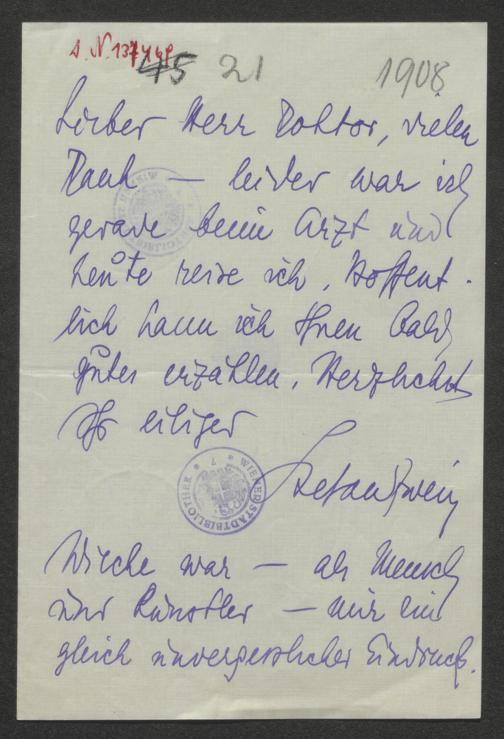 s. N. 137448
45 21 1908
Lieber Herr Doktor, vielen
Dank — leider war ich
gerade beim Arzt und
heute reise ich. Hoffent-
lich kann ich Ihnen bald
Gutes erzählen. Herzlichst
Ihr eiliger
Stefan Zweig
WIENER STADTBIBLIOTHEK
war — als Mensch
und Künstler — mir ein
gleich unvergesslicher Eindruck.